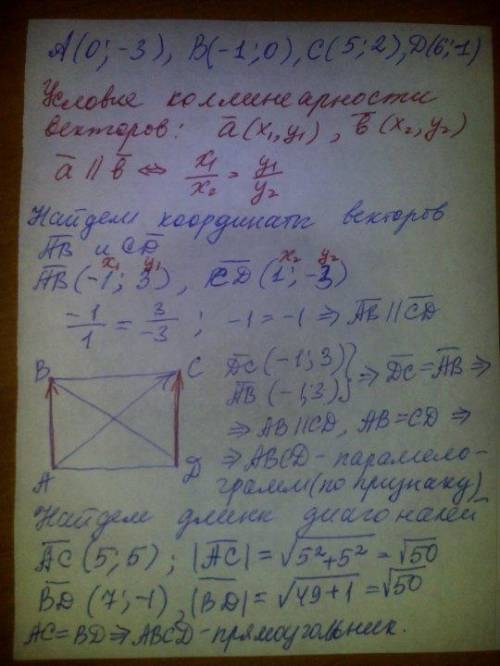 A(0;-3), B(-1;0), C(5;2), D(6;-1)
Условие коллинеарности
векторов: a̅(x₁,y₁), b̅(x₂,y₂)
a̅ ∥ b̅ ⇔ x₁/x₂ = y₁/y₂
Найдем координаты векторов
A̅B̅ и C̅D̅
x₁ y₁ x₂ y₂
A̅B̅(-1; 3), C̅D̅(1; -3)
-1/1 = 3/-3 ; -1=-1 ⇒ A̅B̅ ∥ C̅D̅
B C
A D
D̅C̅ (-1;3)
A̅B̅ (-1;3)} ⇒ D̅C̅=A̅B̅ ⇒
⇒ AB∥CD, AB=CD ⇒
⇒ ABCD - параллело-
грамм (по признаку)
Найдем длины диагоналей
A̅C̅(5;5); |A̅C̅|=√(5²+5²)=√50
B̅D̅(7;-1), |B̅D̅|=√(49+1)=√50
AC=BD⇒ABCD-прямоугольник.